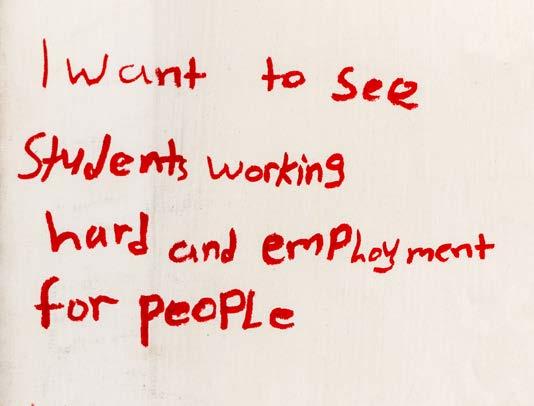 I want to see
Students working
hard and emPhoyment
for peoPLe